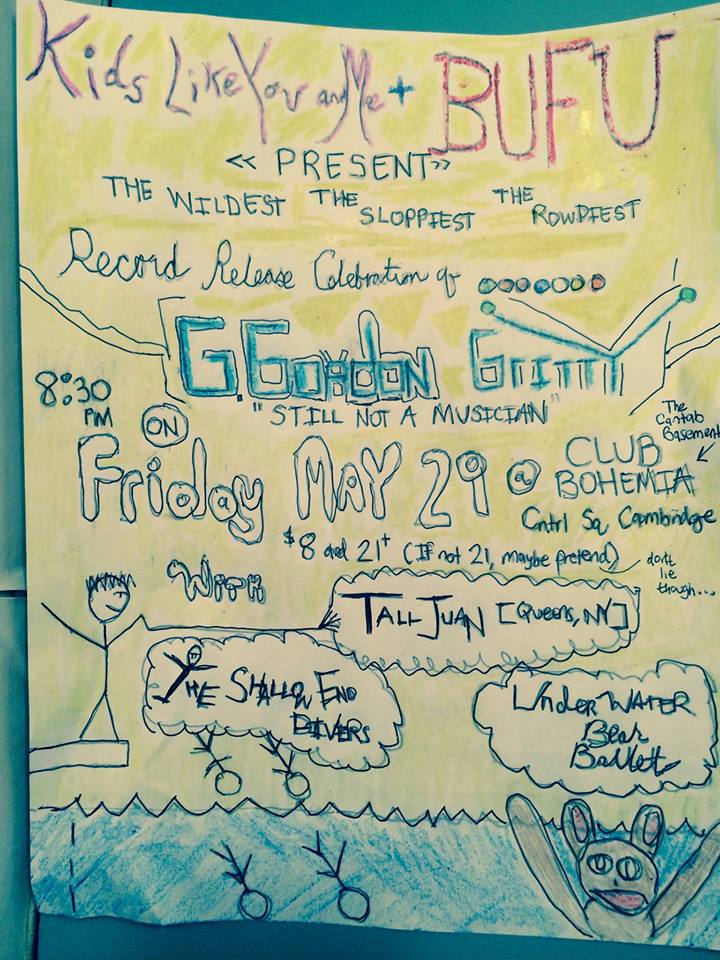 Kids Like You and Me + BUFU
<< PRESENT >>
THE WILDEST THE SLOPPIEST THE ROWDIEST
Record Release Celebration of
G. Gordon Gritty
"STILL NOT A MUSICIAN"
8:30 PM
ON
Friday MAY 29 @ CLUB BOHEMIA
The Cantab Basement
Cntrl Sq Cambridge
$8 and 21+ (If not 21, maybe pretend)
don't lie though...
With
TALL JUAN [Queens, NY]
THE SHALLOW END DIVERS
UnderWATER Bear Ballet